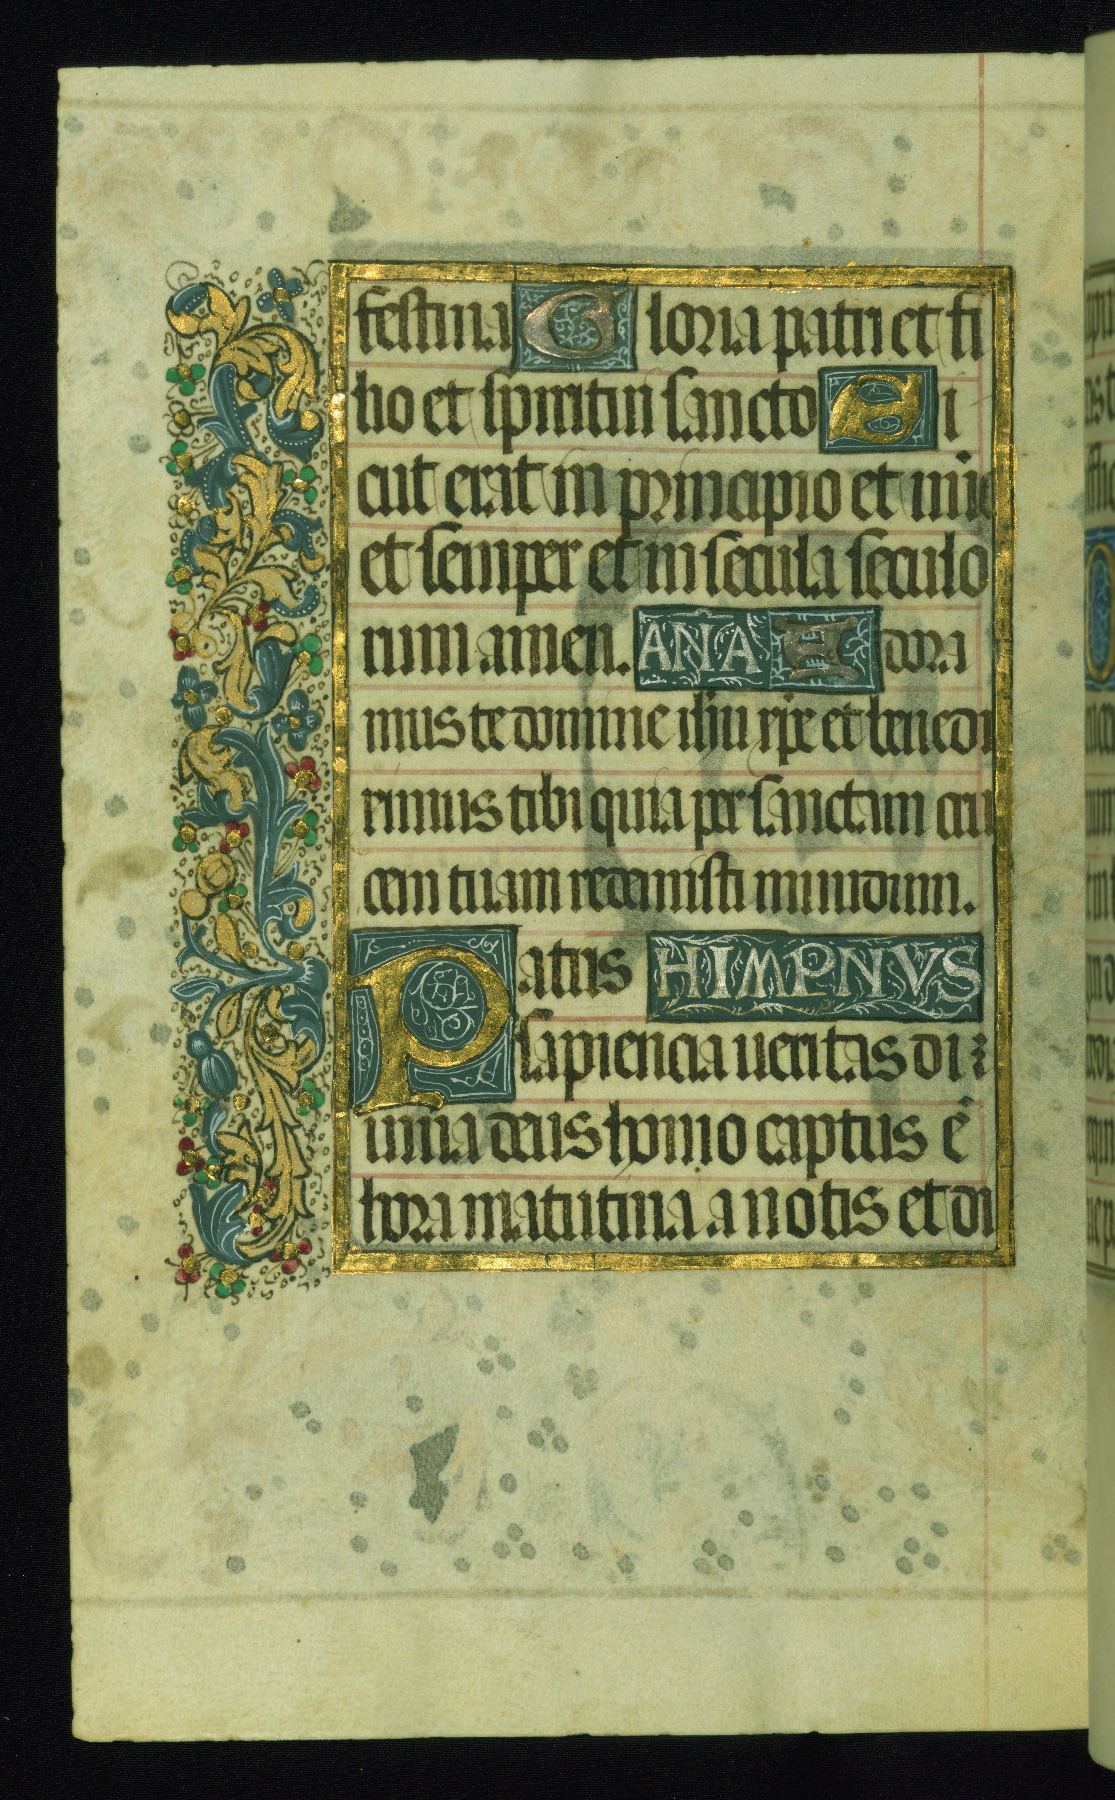 festina Gloria patri et fi
lio et spiritui sancto Si
cut erat in principio et nūc
et semper et in secula seculo
rum amen. ANA Adora
mus te domine ihu xpe et benedi
cimus tibi quia per sanctam cru
cem tuam redemisti mundum.
Patris HIMPNVS
sapiencia ueritas di
uina deus homo captus ē
hora matutina a notis et di